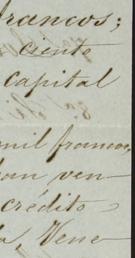 francos;
ciente
capital
mil francos,
han ven
crédito
la, Vene